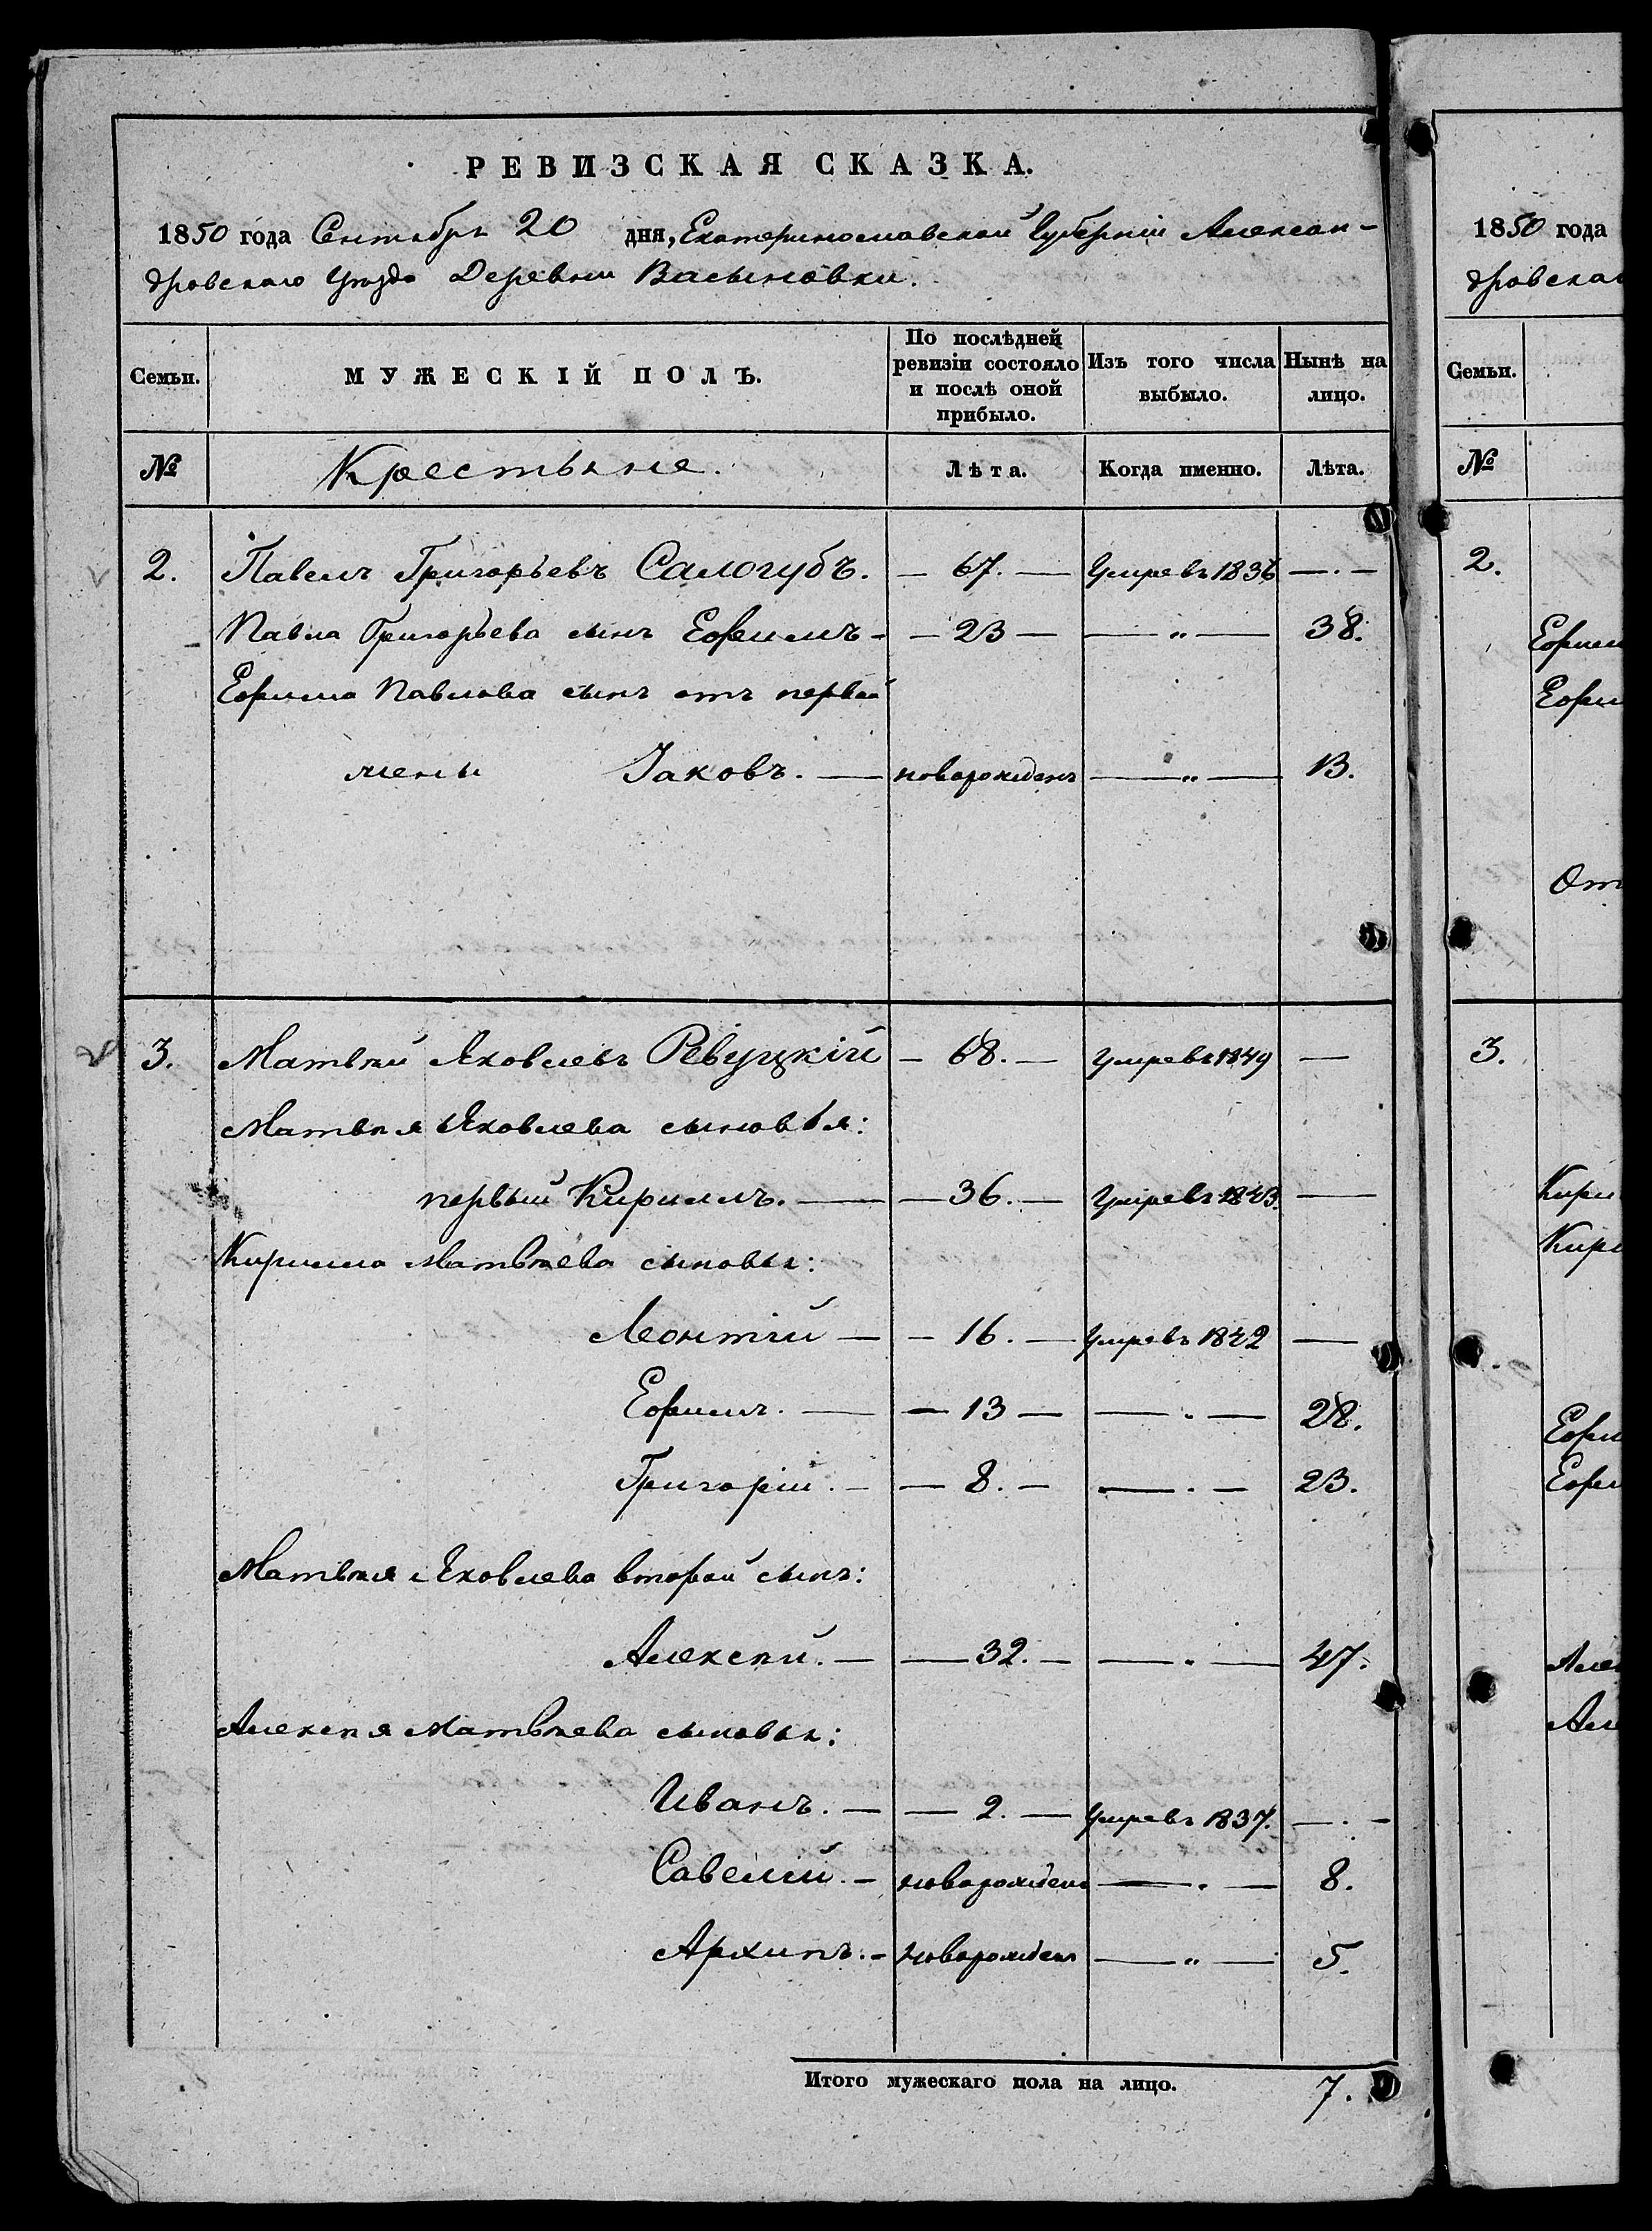 РЕВИЗСКАЯ СКАЗКА.
1850 года Сентября 20 дня, Екатеринославской Губерніи Алексан-
дровскаго Уѣзда Деревни Васыновки.
Семьи. МУЖЕСКІЙ ПОЛЪ. По послѣдней ревизіи состояло и послѣ оной прибыло. Изъ того числа выбыло. Нынѣ на лицо.
№ Крестьяне. Лѣта. Когда именно. Лѣта.
2. Павелъ Григорьевъ Салогубъ. — 67. — Умре въ 1836 — . —
Павла Григорьева сынъ Ефимъ — — 23 — — „ — 38.
Ефима Павлова сынъ отъ первой
жены Іаковъ. — новорожденъ — „ — 13.
3. Матвѣй Яковлевъ Ревуцкій — 68. — Умре въ 1849 —
Матвѣя Яковлева сыновья:
первый Кириллъ. — — 36. — Умре въ 1843. —
Кирилла Матвѣева сыновья:
Леонтій — — 16. — Умре въ 1842 —
Ефимъ. — — 13 — — . — 28.
Григорій. — — 8. — — . — 23.
Матвѣя Яковлева второй сынъ:
Алексѣй. — — 32. — — . — 47.
Алексѣя Матвѣева сыновья:
Иванъ. — — 2. — Умре въ 1837. — . —
Савелій. — новорожденъ — . — 8.
Архипъ. — новорожденъ — „ — 5.
Итого мужескаго пола на лицо. 7.
1850 года
дровскаг
Семьи.
№
2.
Ефим
Ефи
От
3.
Кири
Кири
Ефи
Ефи
Алек
Але